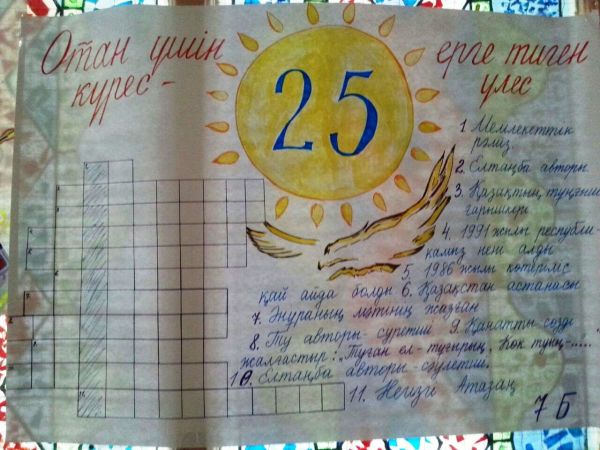 Отан үшін күрес -
ерге тиген үлес
25
1 Мемлекеттік
рәміз
2. Елтаңба авторы.
3. Қазақтың тұңғыш
ғарышкері
4. 1991 жылы республи-
камыз нені алды
5. 1986 жылы көтеріліс
қай айда болды 6. Қазақстан астанасы
7. Әнұранның мәтінің жазған
8. Ту авторы - суретші 9. Қанатты сөзді
жалғастыр: „Туған ел - тұғырың, Көк туың-.....
10. Елтаңба авторы - сәулетші.
11. Негізгі Атазаң
7 Б